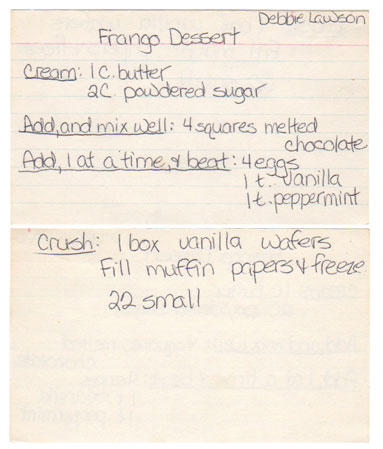 Debbie Lawson
Frango Dessert
Cream: 1 C. butter
2C. powdered sugar
Add, and mix well: 4 squares melted
chocolate
Add, 1 at a time, & beat: 4 eggs
1 t. vanilla
1 t. peppermint
Crush: 1 box vanilla wafers
Fill muffin papers & freeze
22 small